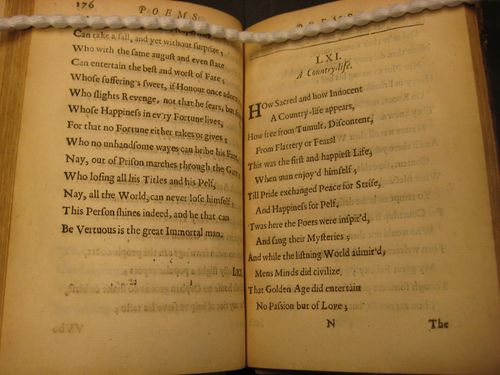 176
POEMS
Can take a fall, and yet without surprize;
Who with the same august and even state
Can entertain the best and worst of Fate;
Whose suffering's sweet, if Honour once adorn it
Who slights Revenge, not that he fears, but
Whose Happiness in ev'ry Fortune lives,
For that no Fortune either takes or gives;
Who no unhandsome wayes can bribe his Fate,
Nay, out of Prison marches through the Gate;
Who losing all his Titles and his Pelf,
Nay, all the World, can never lose himself;
This Person shines indeed, and he that can
Be Vertuous is the great Immortal man.
LXI.
POEMS
LXI.
A Country-life.
HOw Sacred and how Innocent
A Country-life appears,
How free from Tumult, Discontent,
From Flattery or Fears!
This was the first and happiest Life,
When man enjoy'd himself;
Till Pride exchanged Peace for Strife,
And Happiness for Pelf.
'Twas here the Poets were inspir'd,
And sang their Mysteries;
And while the listning World admir'd,
Mens Minds did civilize.
That Golden Age did entertain
No Passion but of Love;
N
The